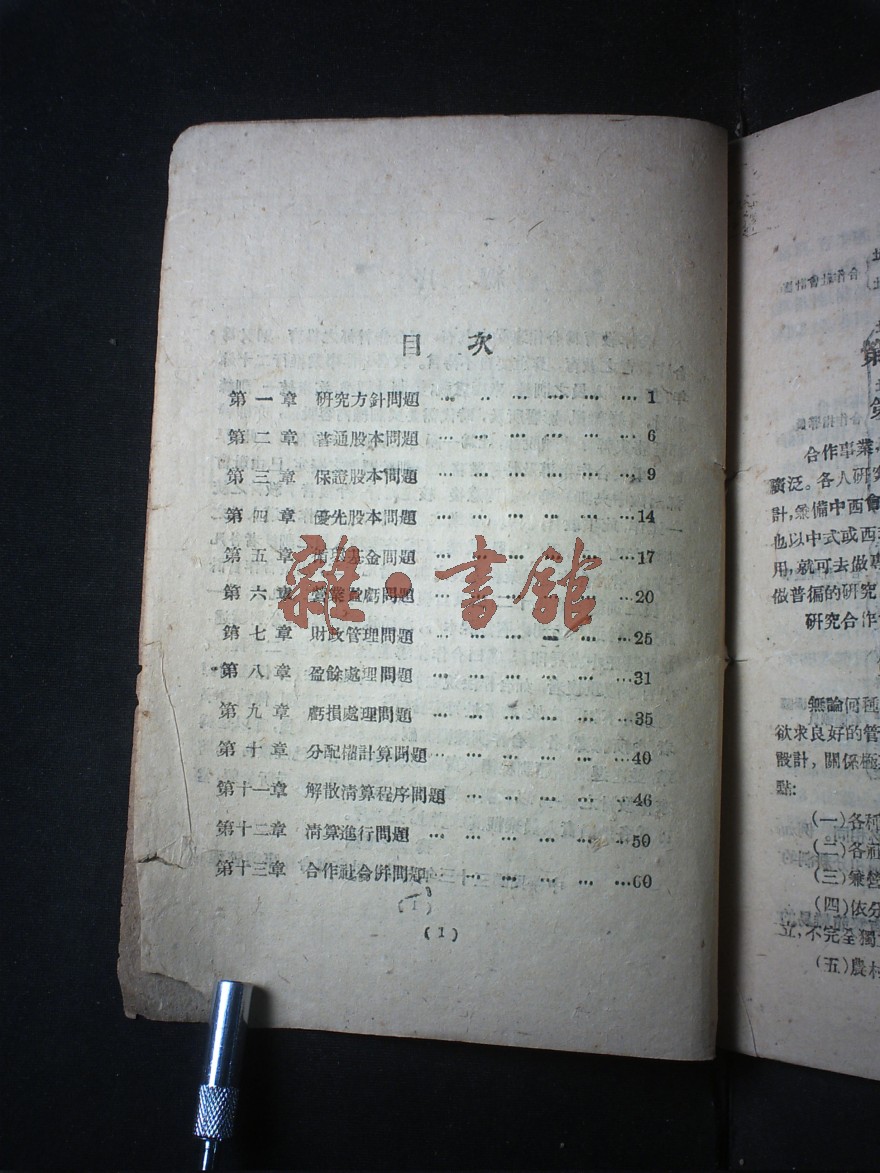 目 次
第一章 研究方針問題 … … … … … … 1
第二章 普通股本問題 … … … … … … 6
第三章 保證股本問題 … … … … … … 9
第四章 優先股本問題 … … … … … …14
第五章 循環基金問題 … … … … … …17
第六章 營業盈虧問題 … … … … … …20
第七章 財政管理問題 … … … … … …25
第八章 盈餘處理問題 … … … … … …31
第九章 虧損處理問題 … … … … … …35
第十章 分配權計算問題… … … … … …40
第十一章 解散清算程序問題 … … … … …46
第十二章 清算進行問題 … … … … … …50
第十三章 合作社合併問題 … … … … …60
(1)
(1)
雜·書館
合作事業
廣泛。各人研究
計,兼備中西會
也以中式或西
用,就可去做專
做普徧的研究
研究合作
無論何種
欲求良好的管
設計,關係極
點:
(一)各種
(二)各社
(三)兼營
(四)依分
立,不完全獨
(五)農村